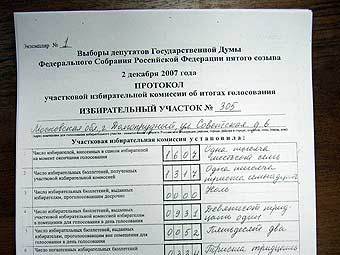 Экземпляр № 1
Выборы депутатов Государственной Думы
Федерального Собрания Российской Федерации пятого созыва
2 декабря 2007 года
ПРОТОКОЛ
участковой избирательной комиссии об итогах голосования
ИЗБИРАТЕЛЬНЫЙ УЧАСТОК № 305
Московская обл, г. Долгопрудный, ул. Советская д. 6
Участковая избирательная комиссия установила:
1 Число избирателей, внесенных в список избирателей на момент окончания голосования 1607 Одна тысяча шестьсот семь
2 Число избирательных бюллетеней, полученных участковой избирательной комиссией 1317 Одна тысяча триста семнадцать
3 Число избирательных бюллетеней, выданных избирателям, проголосовавшим досрочно 0000 Ноль
4 Число избирательных бюллетеней, выданных участковой избирательной комиссией избирателям в помещении для голосования в день голосования 0931 Девятьсот тридцать один
5 Число избирательных бюллетеней, выданных избирателям, проголосовавшим вне помещения для голосования в день голосования 0052 Пятьдесят два
Число погашенных избирательных бюллетеней Триста тридцать